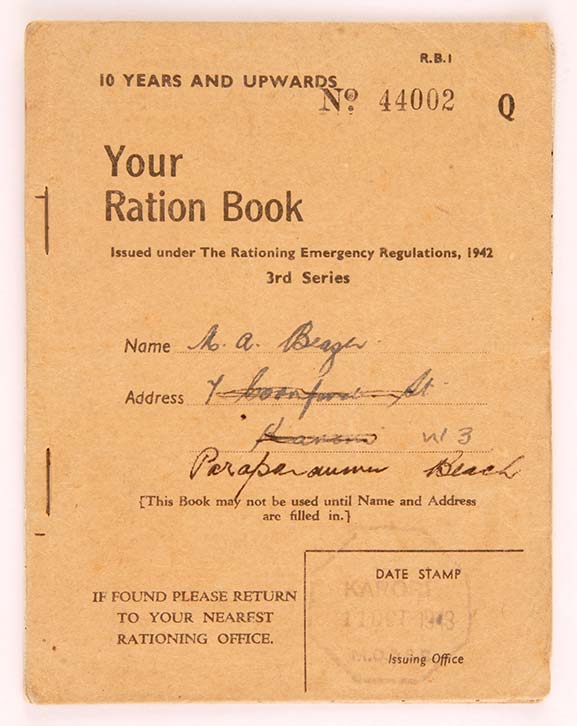 R.B.1
10 YEARS AND UPWARDS
Nº 44002 Q
Your
Ration Book
Issued under The Rationing Emergency Regulations, 1942
3rd Series
Name A. Beazer
Address 7 St
Karori W3
Paraparaumu Beach
[This Book may not be used until Name and Address
are filled in.]
IF FOUND PLEASE RETURN
TO YOUR NEAREST
RATIONING OFFICE.
DATE STAMP
KARORI
11 OCT 1943
Issuing Office